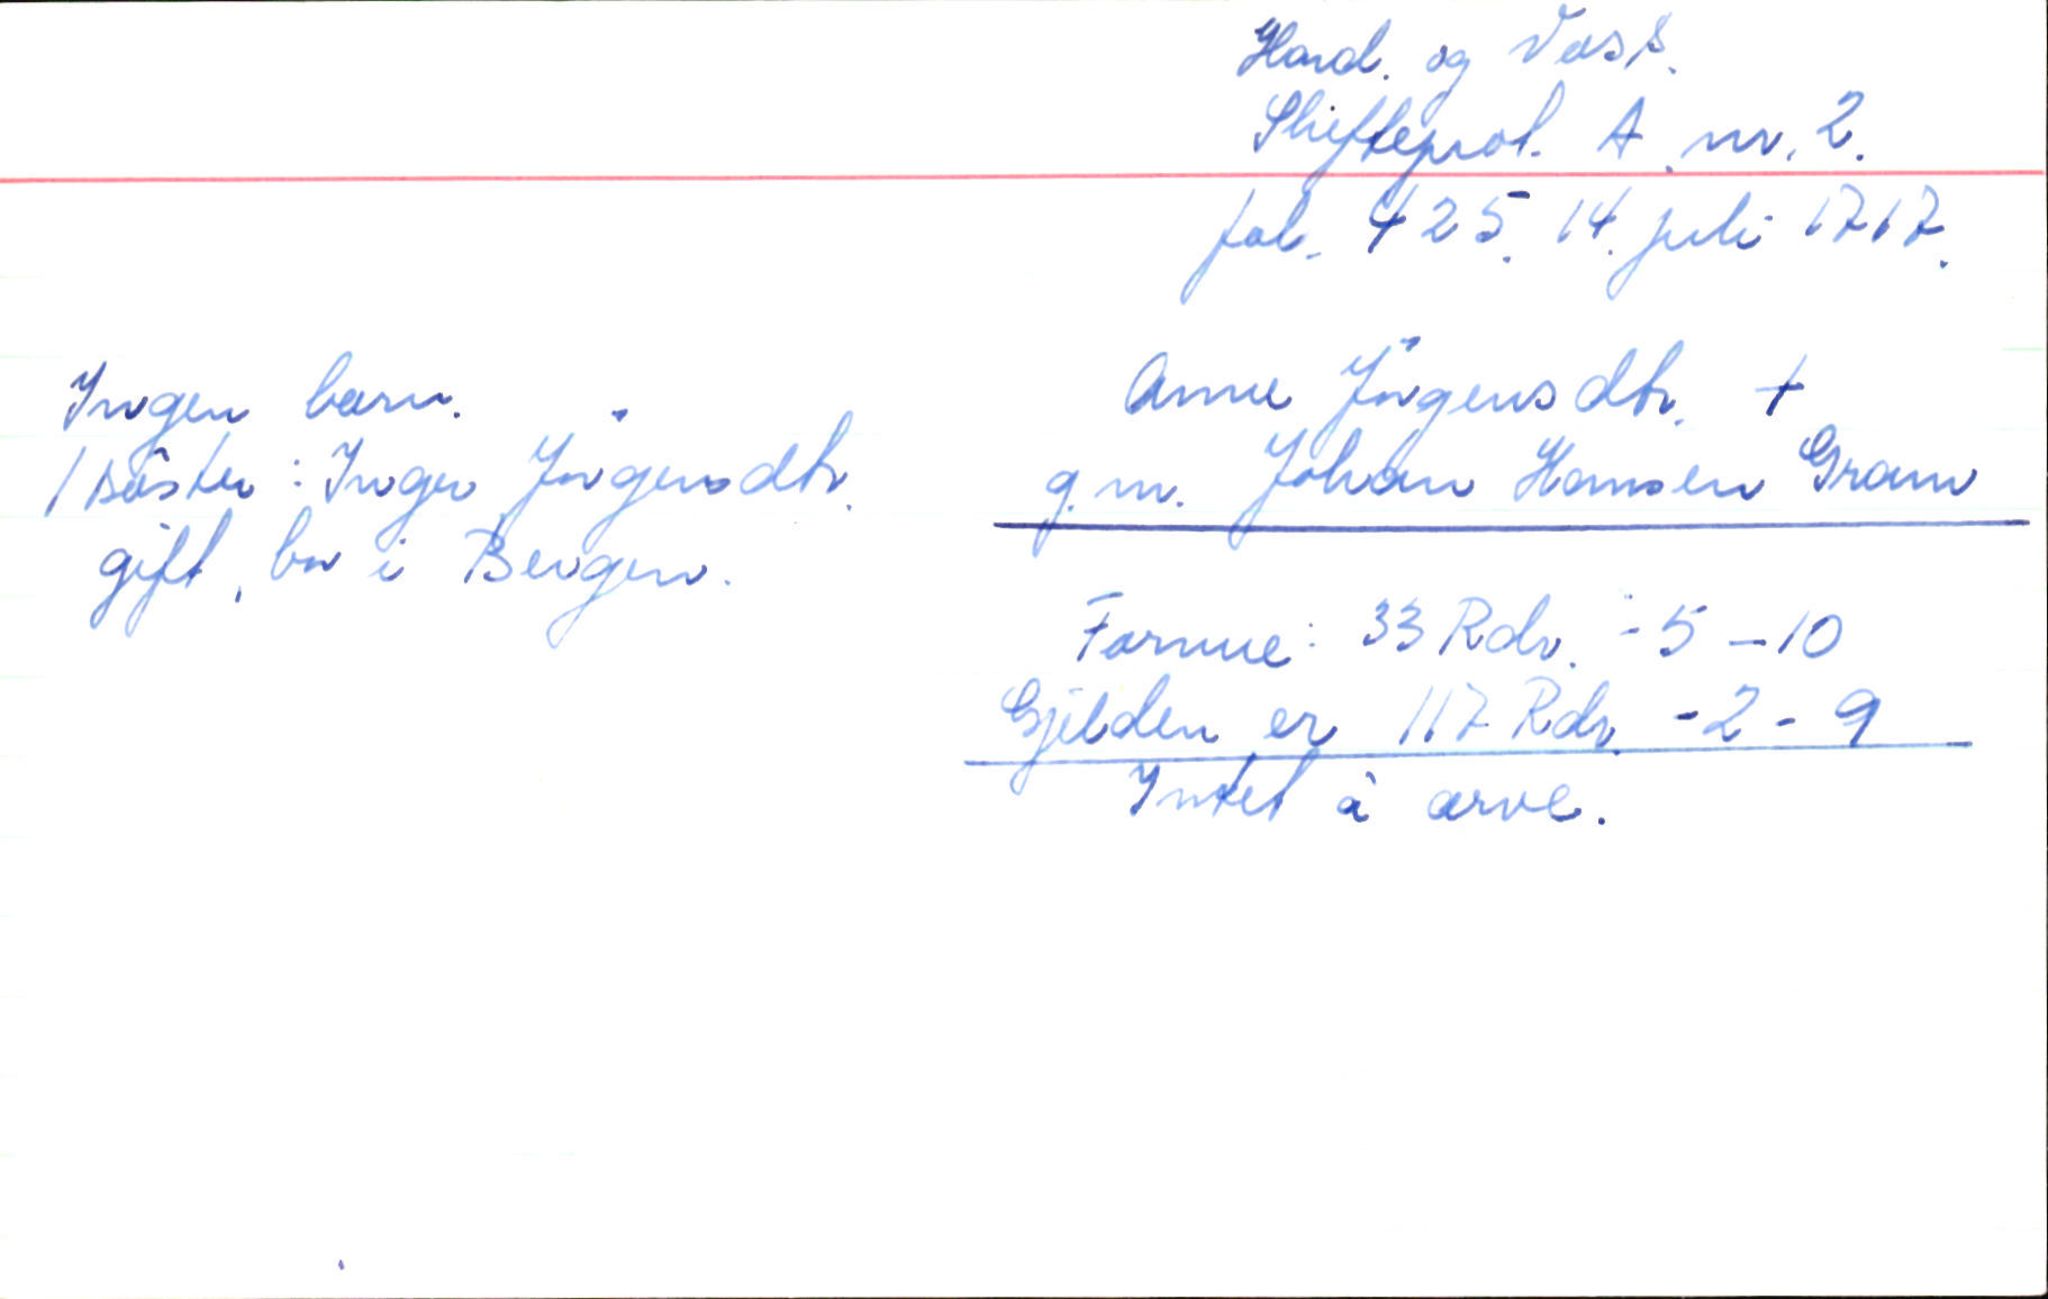 Hard. og Voss.
Skifteprot. A. nr. 2.
fol. 425. 14. juli 1717.
Anne Jörgensdtr. +
g.m. Johan Hansen Gram
Ingen barn.
1 söster: Inger Jörgensdtr.
gift, bor i Bergen.
Formue: 33 Rdr. - 5 - 10
Gjelden er 117 Rdr. - 2 - 9
Intet å arve.